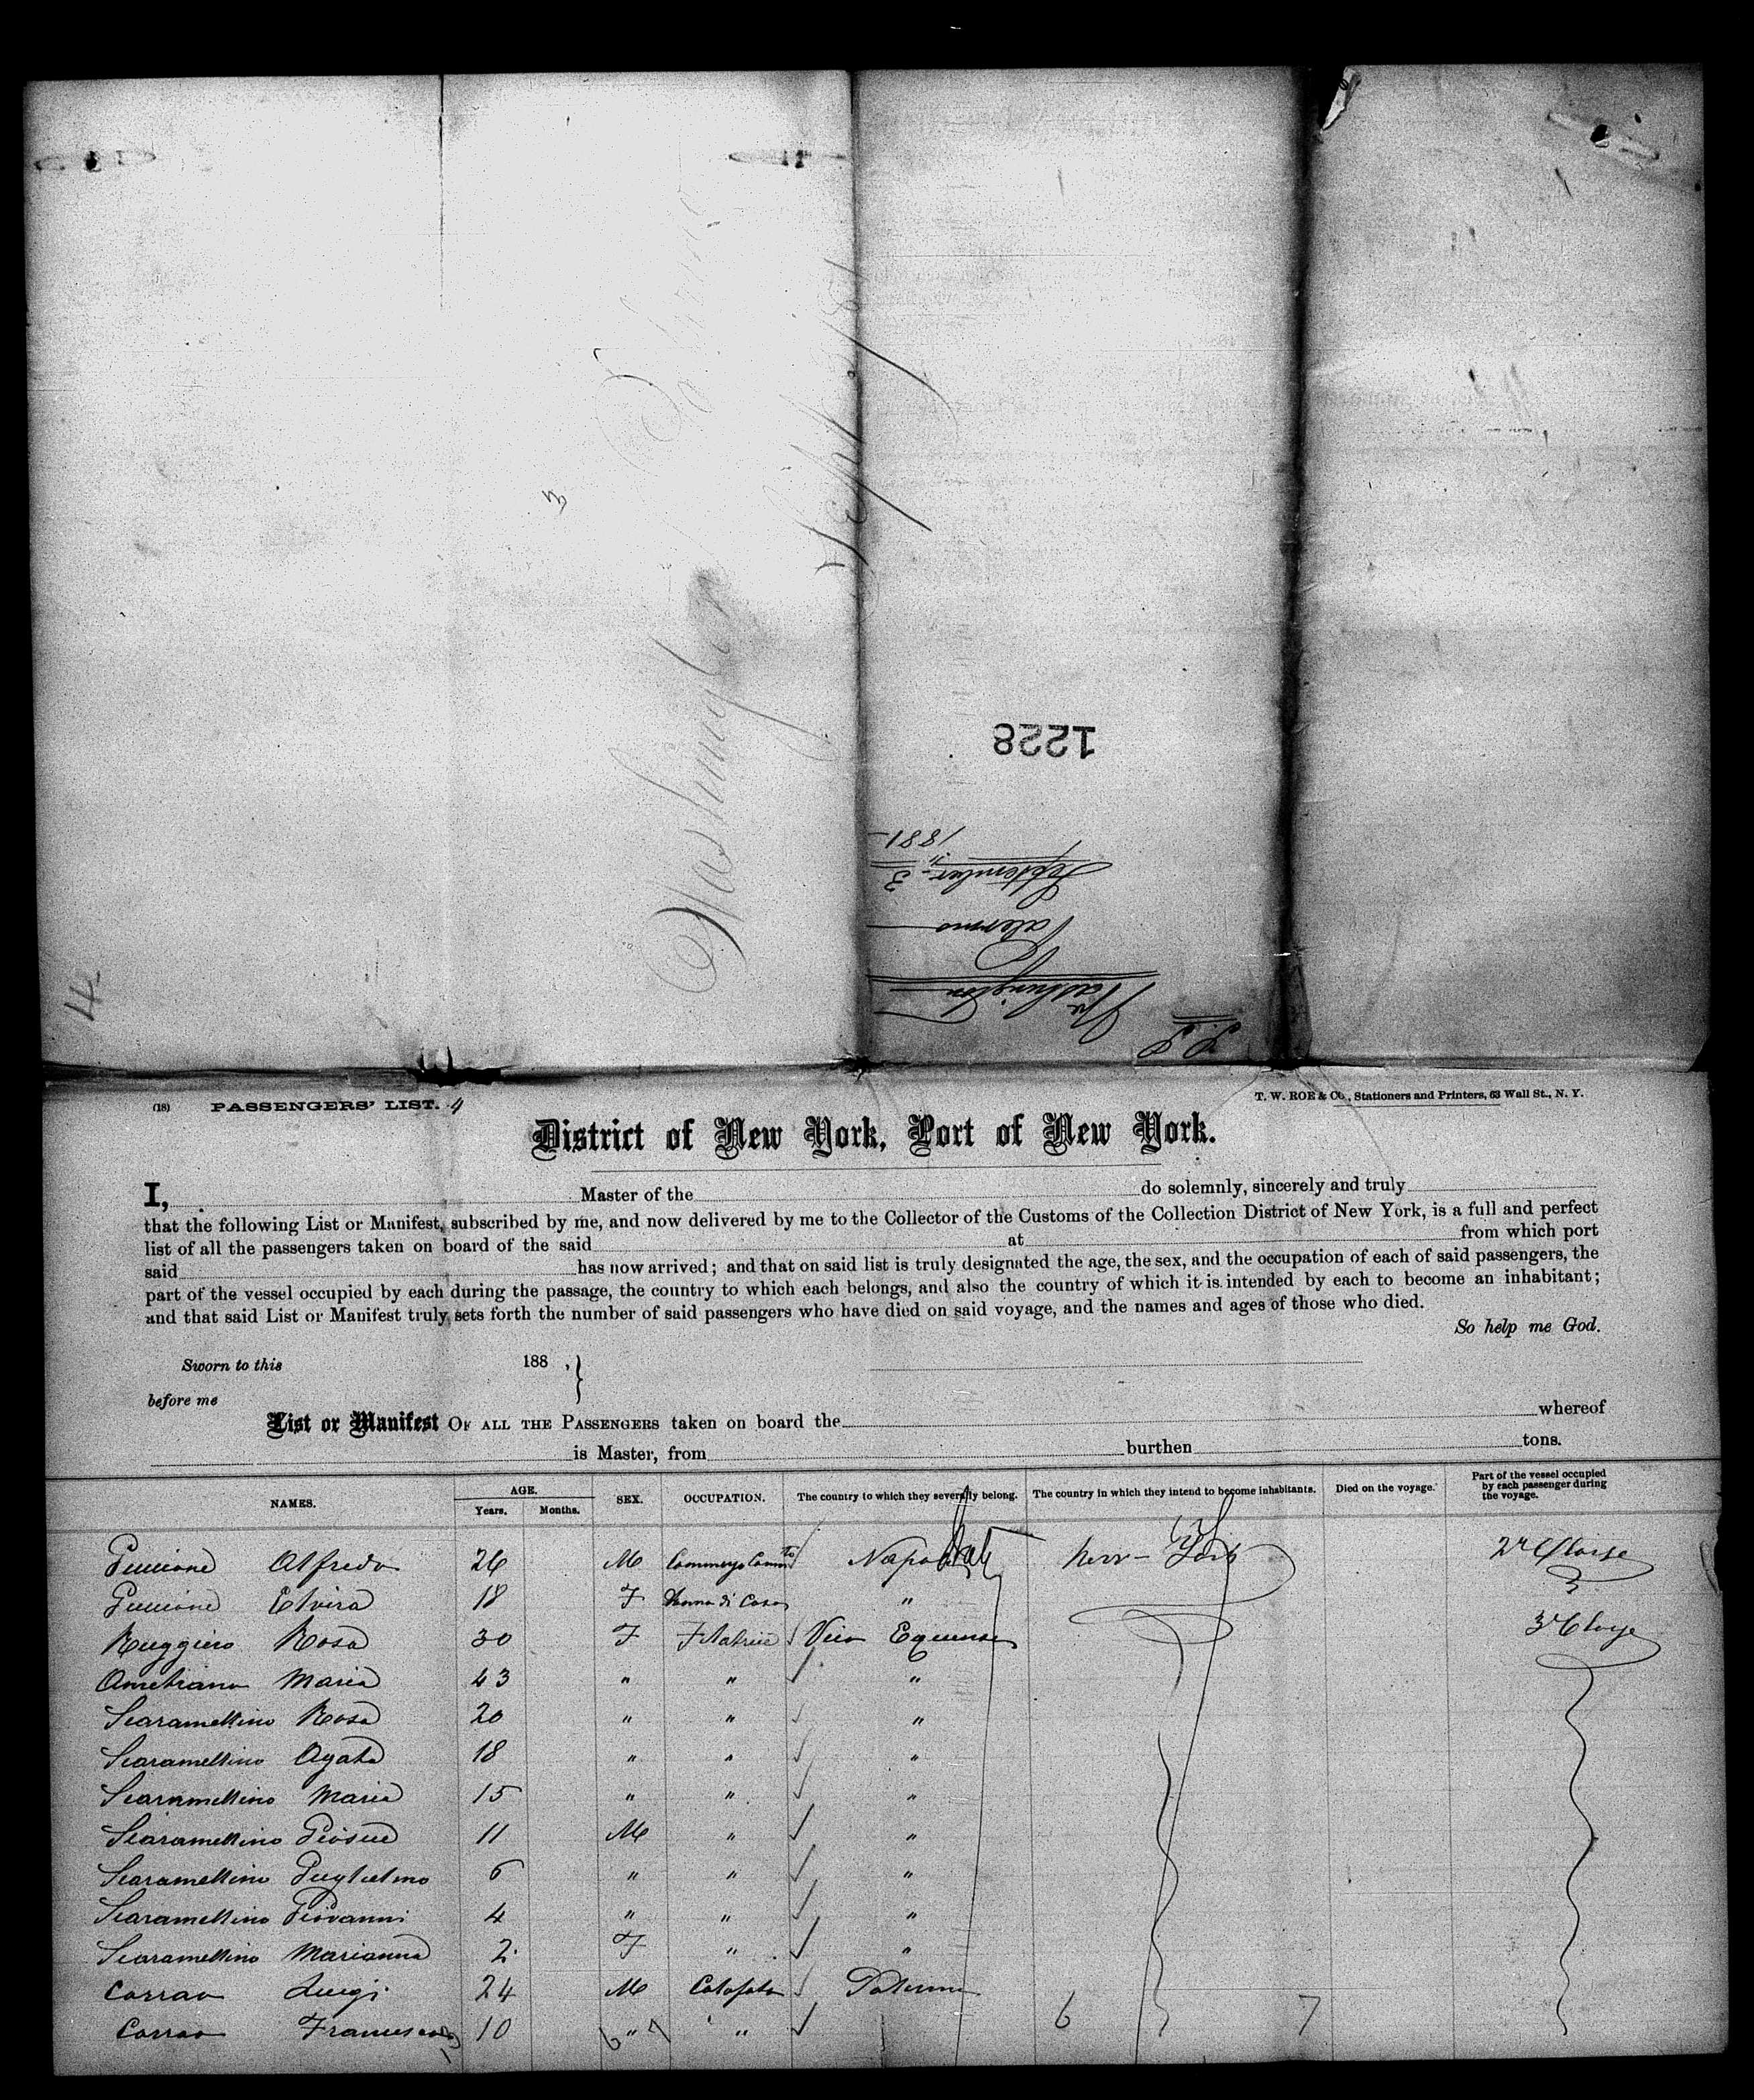 Washington Palermo
Sept 3/81
3
14
1228
S.S.
Washington
Palermo
September 3" 1881
(18) PASSENGERS' LIST. 4
T. W. ROE & Co., Stationers and Printers, 63 Wall St., N. Y.
District of New York, Port of New York.
I, Master of the do solemnly, sincerely and truly
that the following List or Manifest, subscribed by me, and now delivered by me to the Collector of the Customs of the Collection District of New York, is a full and perfect
list of all the passengers taken on board of the said at from which port
said has now arrived; and that on said list is truly designated the age, the sex, and the occupation of each of said passengers, the
part of the vessel occupied by each during the passage, the country to which each belongs, and also the country of which it is intended by each to become an inhabitant;
and that said List or Manifest truly sets forth the number of said passengers who have died on said voyage, and the names and ages of those who died.
So help me God.
Sworn to this 188 ,}
before me
List or Manifest OF ALL THE PASSENGERS taken on board the whereof
is Master, from burthen tons.
NAMES. AGE. Years. Months. SEX. OCCUPATION. The country to which they severally belong. The country in which they intend to become inhabitants. Died on the voyage. Part of the vessel occupied by each passenger during the voyage.
Alfredo 26 M Napoli Italy New-York 2d Classe
Elvira 18 F Donna di Casa " 3
Ruggiero Rosa 30 F Filatrice Vico Equense 3d Classe
Ametrano Maria 43 " " "
Scaramellino Rosa 20 " " "
Scaramellino Agata 18 " " "
Scaramellino Maria 15 " " "
Scaramellino Giosue 11 M " "
Scaramellino Guglielmo 6 " " "
Scaramellino Giovanni 4 " " "
Scaramellino Marianna 2 F " "
Corrao Luigi 24 M Calafato Palermo
Corrao Francesco 10 " " 6 7
13 6 7